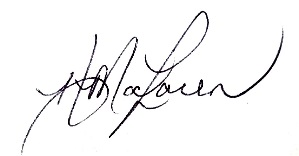 H MacLaren